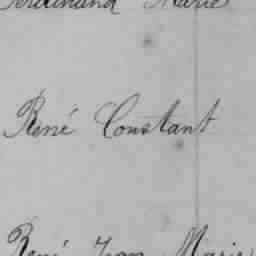 Ferdinand Marie
René Constant
René Yvon Marie